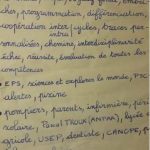 cher, programmation, différenciation,
coopération inter cycles, traces par
intra
sonnalisées, chemins, interdisciplinarité
tâche, réussite, évaluation de toutes les
compétences
EPS, sciences et explorer le monde, PSC
alertes, piscine
pompiers, parents, infirmière,
scolaire, Paul TROUX (ANTHAR), lycée
agricole, USEP, dentiste, CANOPE,